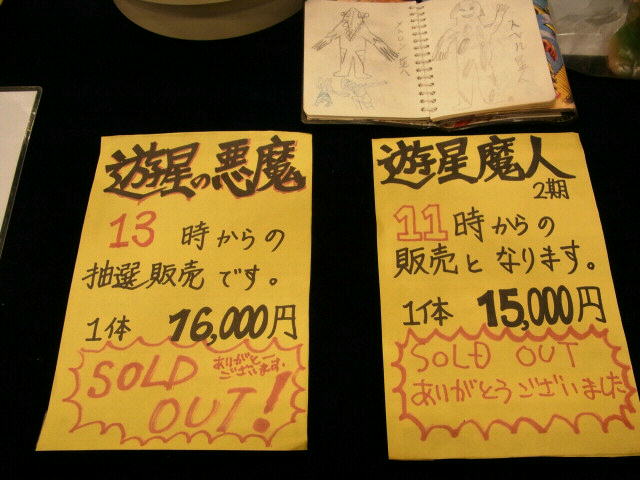 メトロン星人
ペル星人
遊星の悪魔
13時からの
抽選販売です。
1体 16,000円
SOLD
ありがとー
ございます。
OUT!
遊星魔人
2期
11時からの
販売となります。
1体 15,000円
SOLD OUT
ありがとうございました